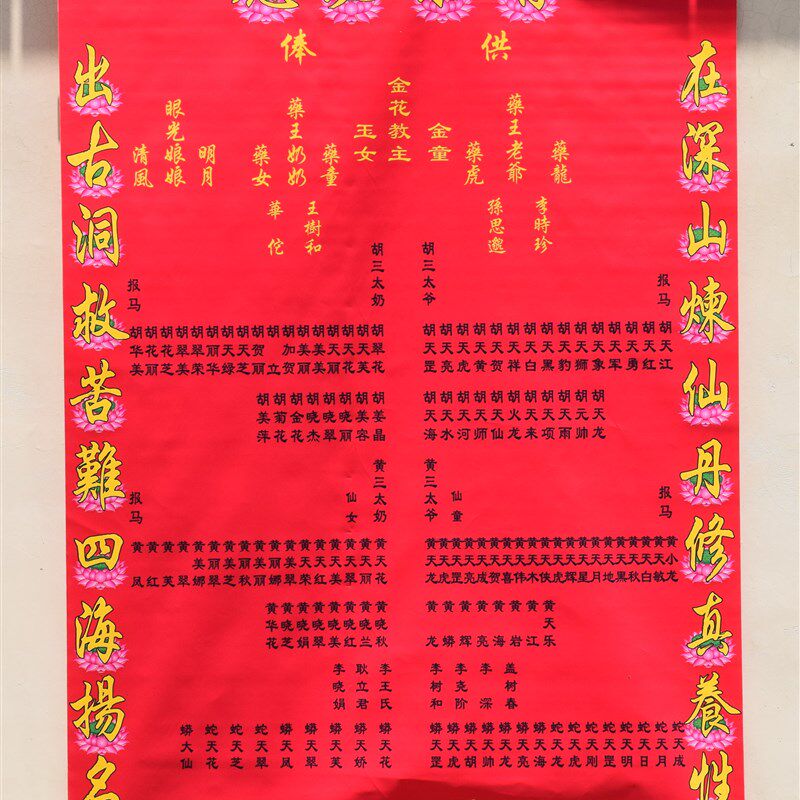 供俸
在深山煉仙丹修真養性
藥龍
李時珍
藥王老爺
孫思邈
藥虎
金童
金花教主
玉女
藥童
王樹和
藥王奶奶
華佗
藥女
明月
眼光娘娘
清風
报马
胡三太爷
胡三太奶
报马
胡天江
胡天红
胡天勇
胡天军
胡天象
胡天狮
胡天豹
胡天黑
胡天白
胡天祥
胡天贺
胡天黄
胡天虎
胡天亮
胡天罡
胡翠花
胡天芙
胡天花
胡美丽
胡美美
胡加贺
胡立
胡贺丽
胡天芝
胡天绿
胡丽华
胡翠荣
胡翠美
胡花芝
胡花丽
胡华美
胡天龙
胡元帅
胡天雨
胡天项
胡天来
胡火龙
胡天仙
胡天师
胡天河
胡天水
胡天海
胡姜晶
胡美容
胡晓丽
胡晓翠
胡晓杰
胡金花
胡菊花
胡美萍
报马
仙童
黄三太爷
黄三太奶
仙女
报马
黄小龙
黄天敏
黄天白
黄天秋
黄天黑
黄天地
黄天月
黄天星
黄天辉
黄天虎
黄天侠
黄天木
黄天伟
黄天喜
黄天贺
黄天成
黄天亮
黄天罡
黄天虎
黄天龙
黄丽花
黄天丽
黄天翠
黄天美
黄天红
黄天荣
黄翠
黄芙
黄红
黄凤
黄天乐
黄江
黄岩
黄海
黄亮
黄辉
黄蟒
黄龙
黄晓秋
黄晓兰
黄晓红
黄晓美
黄晓翠
黄晓娟
黄晓芝
黄华花
盖树春
李深
李尧阶
李树和
李王氏
耿立君
李晓娟
蛇天成
蛇天月
蛇天日
蛇天明
蛇天罡
蛇天刚
蛇天虎
蛇天龙
蟒天海
蟒天亮
蟒天龙
蟒天帅
蟒天胡
蟒天虎
蟒天罡
蟒天花
蟒天娇
蟒天芙
蟒天翠
蟒天凤
蛇天翠
蛇天芝
蛇天花
蟒大仙
出古洞救苦難四海揚名